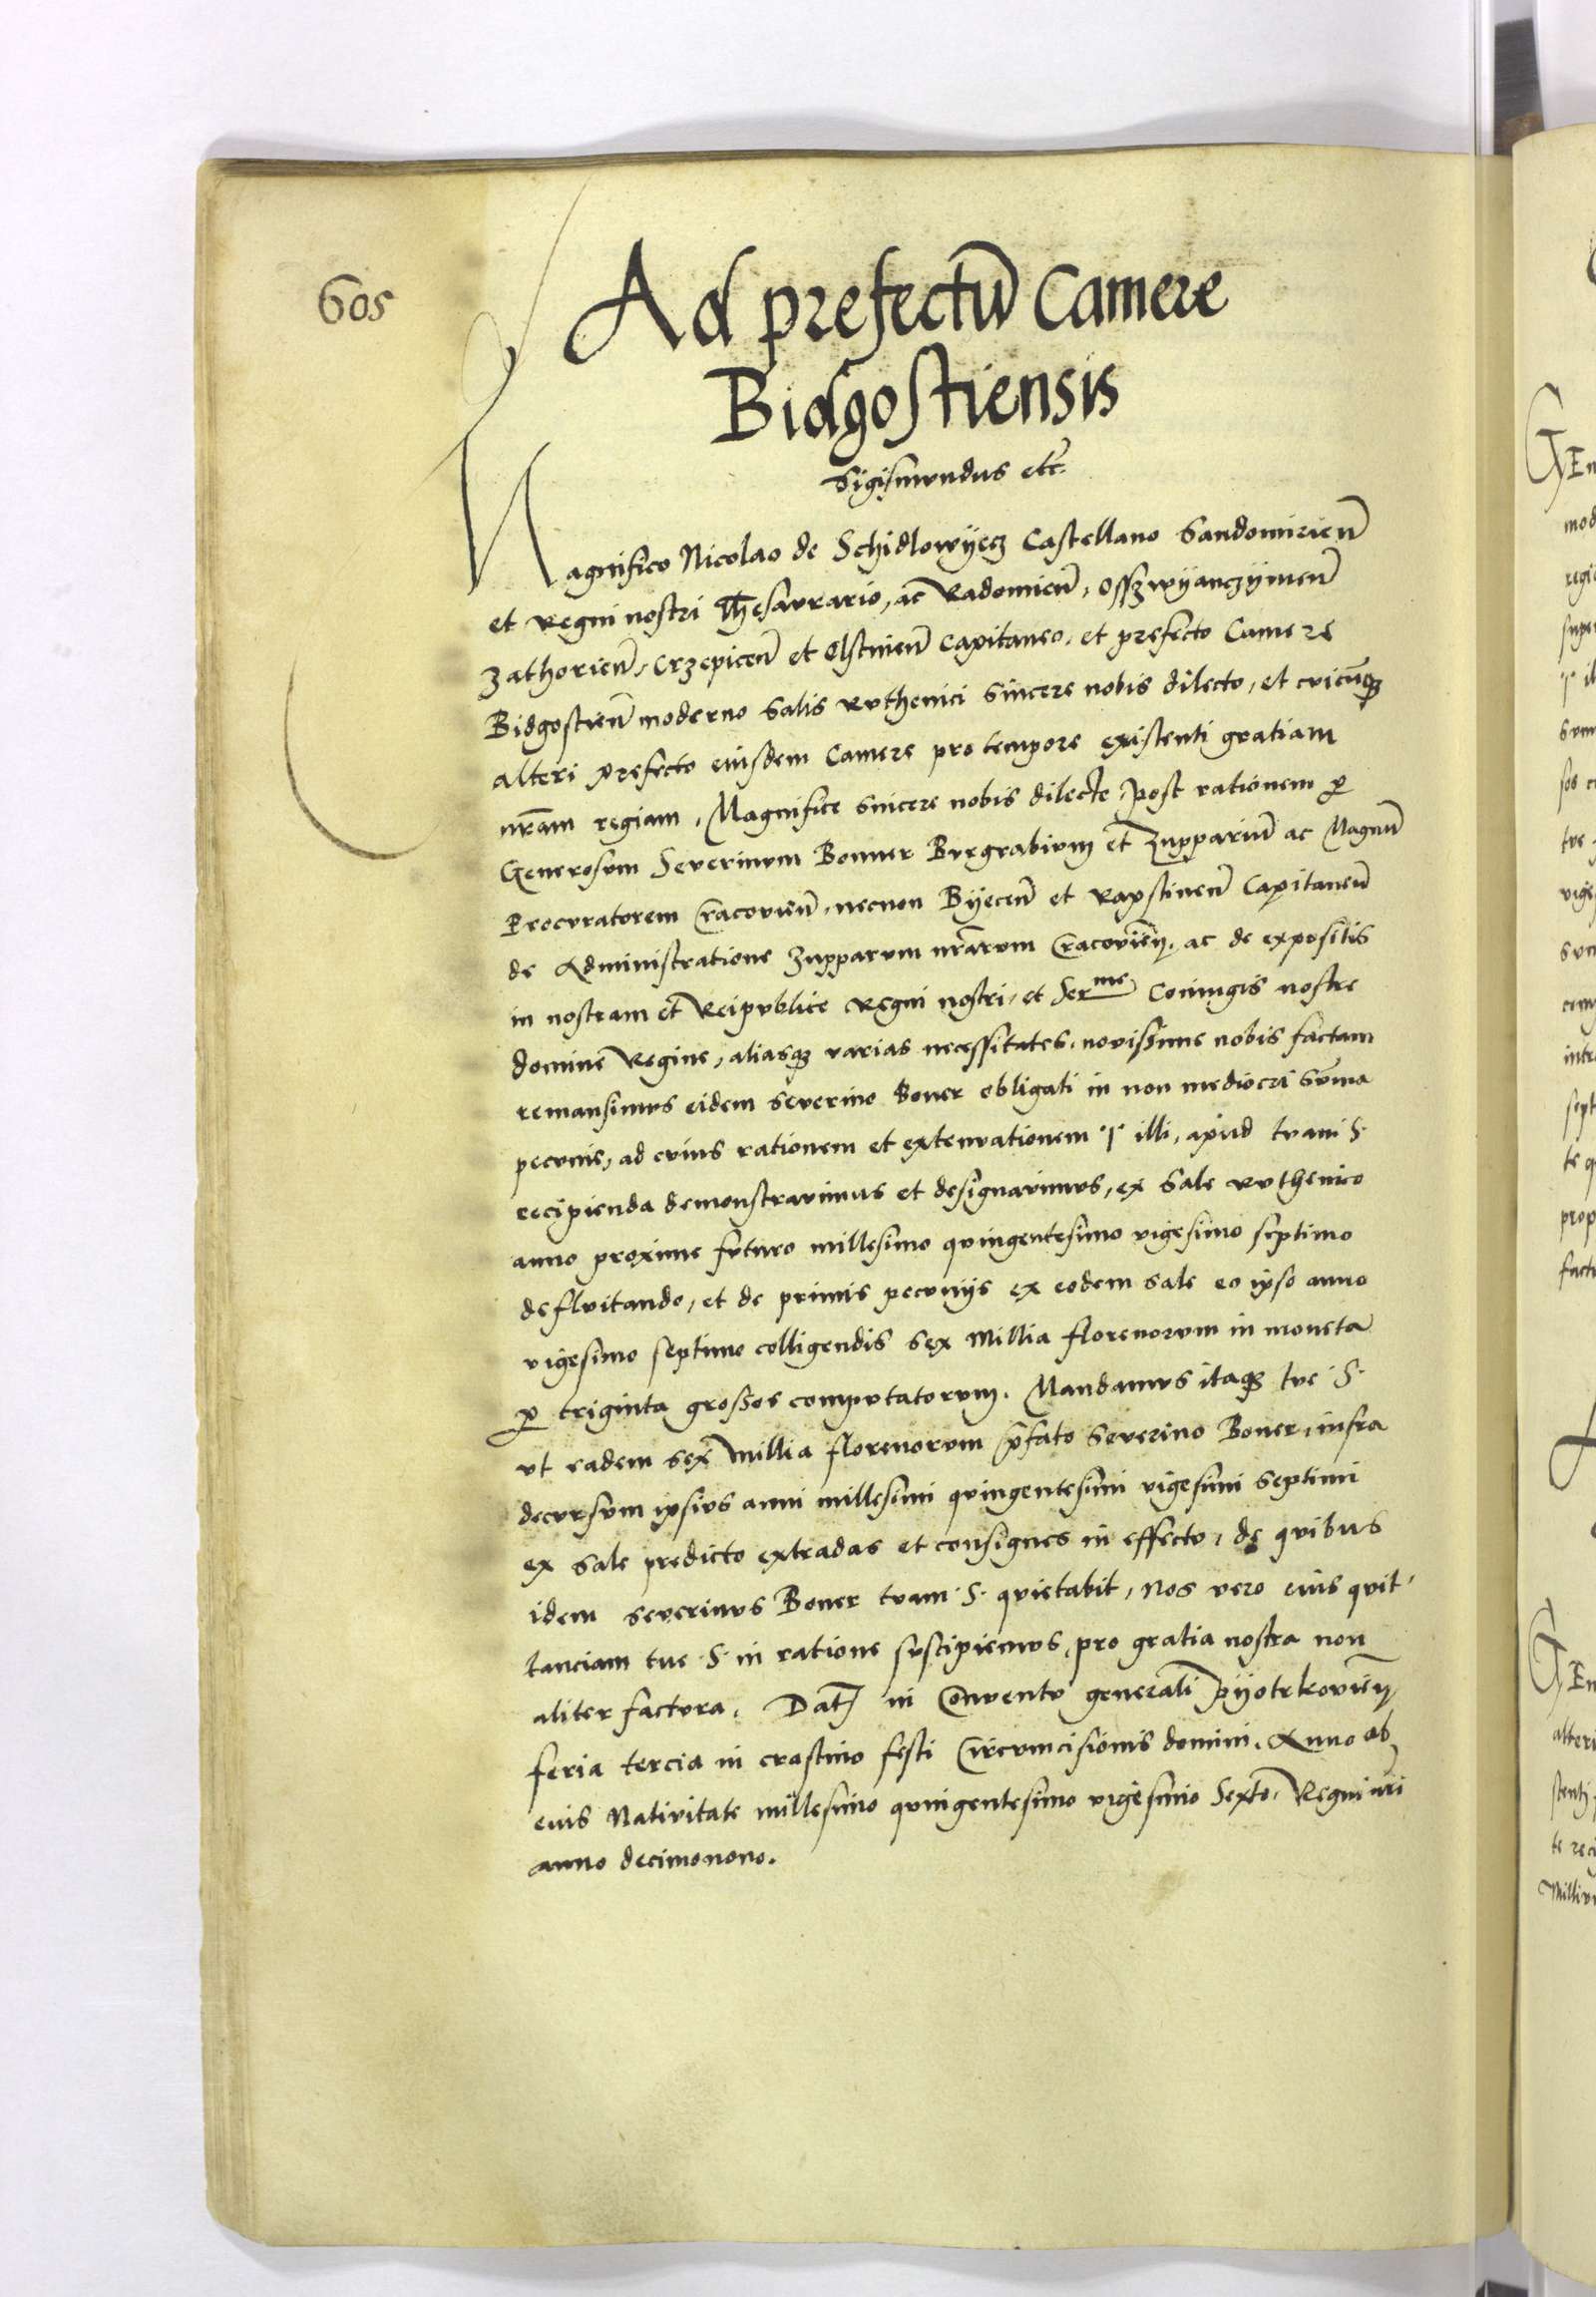 605
Ad prefectū Camere
Bidgostiensis
Sigismundus etc̄.
Magnifico Nicolao de Schidlowyecz Castellano Sandomirien̄
et Regni nostri Thesaurario, ac Radomien̄, Osszwyanczymen̄
Zathorien̄, Crzepicen̄ et Olstinen̄ Capitaneo, et prefecto Camere
Bidgostien̄ moderno Salis Ruthenici Sincere nobis dilecto, et cuicūqꝫ
alteri prefecto eiusdem Camere pro tempore existenti gratiam
nr̄am regiam. Magnifice sincere nobis dilecte, post rationem ꝑ
Generosum Severinum Bonner Burgrabium et Zuppariū ac Magnū
Procuratorem Cracovien̄, necnon Byecen̄ et Rapstinen̄ Capitaneū
de Administratione Zupparum nr̄arum Cracovien̄, ac de expositis
in nostram et Reipublice Regni nostri, et Ser^me Coniugis nostre
domine Regine, aliasqꝫ varias necessitates, novissime nobis factam
remansimus eidem Severino Boner obligati in non mediocri sum̄a
pecunie, ad cuius rationem et extenuationem illi, apud tuam S.
recipienda demonstravimus et designavimus, ex Sale Ruthenico
anno proxime futuro millesimo quingentesimo vigesimo septimo
defluitando, et de primis pecunijs ex eodem sale eo ipso anno
vigesimo septimo colligendis sex Millia florenorum in moneta
ꝑ triginta grossos computatorum. Mandamus itaqꝫ tue S.
ut eadem sex millia florenorum p̄fato Severino Boner, infra
decursum ipsius anni millesimi quingentesimi vigesimi septimi
ex Sale predicto extradas et consignes in effectu, de quibus
idem Severinus Boner tuam S. quietabit, Nos vero eius quit-
tanciam tue S. in ratione suscipiemus, pro gratia nostra non
aliter factura. Dat̄ in Conventu generali Pyotrkovien̄
feria tercia in crastino festi Circumcisionis domini. Anno ab
eius Nativitate millesimo quingentesimo vigesimo Sexto, Regni nr̄i
anno decimonono.